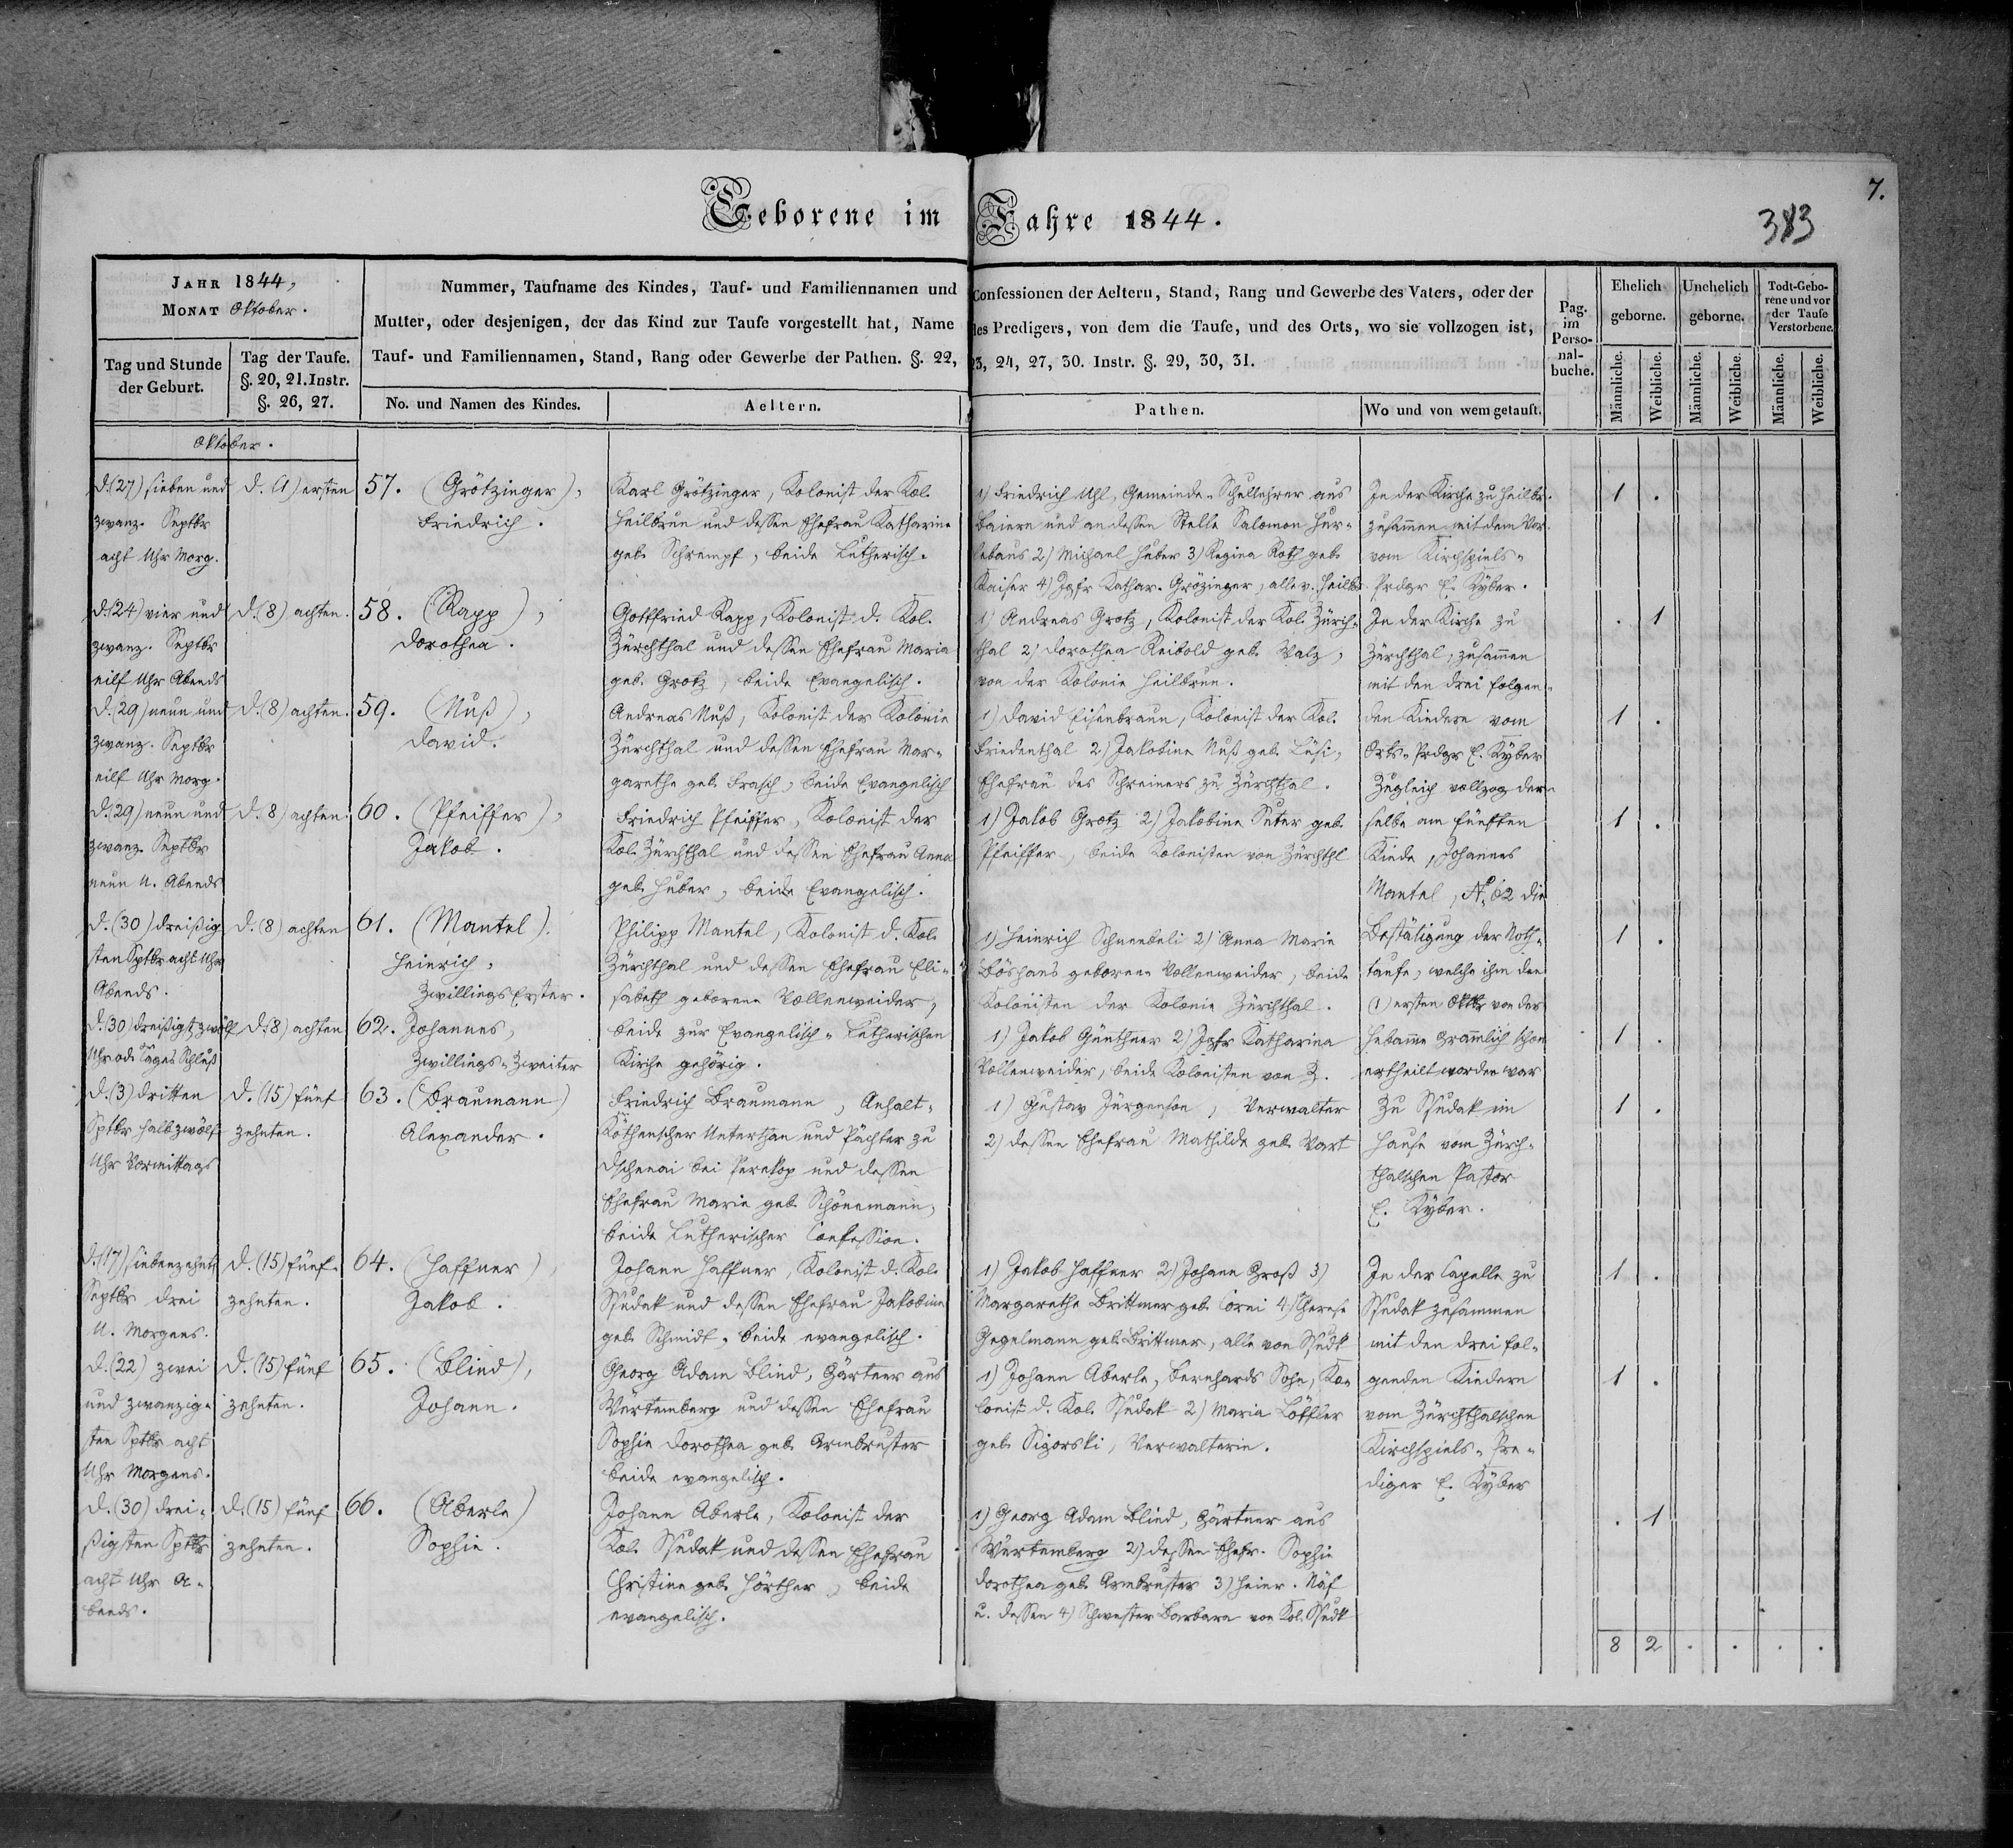 Geborene im Jahre 1844.
7.
383
JAHR 1844,
MONAT Oktober.
Tag und Stunde
der Geburt.
Tag der Taufe.
§. 20, 21. Instr.
§. 26, 27.
Nummer, Taufname des Kindes, Tauf- und Familiennamen und Confessionen der Aeltern, Stand, Rang und Gewerbe des Vaters, oder der
Mutter, oder desjenigen, der das Kind zur Taufe vorgestellt hat, Name des Predigers, von dem die Taufe, und des Orts, wo sie vollzogen ist,
Tauf- und Familiennamen, Stand, Rang oder Gewerbe der Pathen. §. 22, 23, 24, 27, 30. Instr. §. 29, 30, 31.
No. und Namen des Kindes.
Aeltern.
Pathen.
Wo und von wem getauft.
Pag.
im
Perso-
nal-
buche.
Ehelich
geborne.
Unehelich
geborne.
Todt-Gebo-
rene und vor
der Taufe
Verstorbene.
Männliche.
Weibliche.
Männliche.
Weibliche.
Männliche.
Weibliche.
Oktober.
d. (27) sieben und
zwanz. Septbr
acht Uhr Morg.
d. (1) ersten
57. (Grötzinger),
Friedrich.
Karl Grötzinger, Kolonist der Kol.
Heilbrun und dessen Ehefrau Katharine
geb. Schrempf, beide Lutherisch.
1) Friedrich Uhl, Gemeinde-Schullehrer aus
Baiern und an dessen Stelle Salomon Hur-
lebaus 2) Michael Huber 3) Regina Roth geb.
Kaiser 4) Jgfr Kathar. Grözinger, alle v. Heilbr.
In der Kirche zu Heilbr.
zusammen mit dem Vor.
vom Kirchspiels-
Predgr E. Kyber.
1 .
d. (24) vier und
zwanz. Septbr
eilf Uhr Abends
d. (8) achten.
58. (Rapp),
Dorothea.
Gottfried Rapp, Kolonist d. Kol.
Zürchthal und dessen Ehefrau Maria
geb. Grotz, beide Evangelisch.
1) Andreas Grotz, Kolonist der Kol. Zürch-
thal 2) Dorothea Reibold geb. Walz,
von der Kolonie Heilbrun.
In der Kirche zu
Zürchthal, zusammen
mit den drei folgen-
. 1
d. (29) neun und
zwanz. Septbr
eilf Uhr Morg.
d. (8) achten.
59. (Nuß),
David.
Andreas Nuß, Kolonist der Kolonie
Zürchthal und dessen Ehefrau Mar-
garethe geb. Frasch, beide Evangelisch
1) David Eisenbraun, Kolonist der Kol.
Friedenthal 2) Jakobine Nuß geb. Lüsi,
Ehefrau des Schreiners zu Zürchthal.
den Kindern vom
Orts-Prdgr E. Kyber
Zugleich vollzog der-
1 .
d. (29) neun und
zwanz. Septbr
neun U. Abends
d. (8) achten.
60. (Pfeiffer),
Jakob.
Friedrich Pfeiffer, Kolonist der
Kol. Zürchthal und dessen Ehefrau Anna
geb. Huber, beide Evangelisch.
1) Jakob Grotz 2) Jakobine Suter geb.
Pfeiffer, beide Kolonisten von Zürchthl
selbe am fünften
Kinde, Johannes
Mantel, N. 62 die
1 .
d. (30) dreißig
sten Sptbr acht Uhr
Abends.
d. (8) achten
61. (Mantel).
Heinrich,
Zwillings Erster.
Philipp Mantel, Kolonist d. Kol.
Zürchthal und dessen Ehefrau Eli-
sabeth geborene Vollenweider,
1) Heinrich Schneebeli 2) Anna Marie
Böshans geborene Vollenweider, beide
Kolonisten der Kolonie Zürchthal.
Bestätigung der Noth-
taufe, welche ihm den
(1) ersten Oktbr von der
1 .
d. (30) dreißigst. zwölf
Uhr od. Tages Schluß
d. (8) achten
62. Johannes,
Zwillings-Zweiter
beide zur Evangelisch-Lutherischen
Kirche gehörig.
1) Jakob Günthner 2) Jgfr Katharina
Vollenweider, beide Kolonisten von Z.
Hebamme Grämlich schon
ertheilt worden war
1 .
d. (3) dritten
Sptbr halb zwölf
Uhr Vormittags
d. (15) fünf
zehnten.
63. (Braumann)
Alexander.
Friedrich Braumann, Anhalt-
Köthenscher Unterthan und Pächter zu
Dschenai bei Perekop und dessen
Ehefrau Marie geb. Schönemann,
beide Lutherischer Confession.
1) Gustav Jürgenson, Verwalter
2) dessen Ehefrau Mathilde geb. Wart
Zu Ssudak im
Hause vom Zürch-
thalschen Pastor
E. Kyber.
1 .
d. (17) siebenzehnt.
Septbr drei
U. Morgens.
d. (15) fünf-
zehnten.
64. (Haffner),
Jakob.
Johann Haffner, Kolonist d. Kol.
Ssudak und dessen Ehefrau Jakobine
geb. Schmidt, beide evangelisch.
1) Jakob Haffner 2) Johann Groß 3)
Margarethe Brittner geb. Corei 4) Therese
Gegelmann geb. Brittner, alle von Ssudk
In der Capelle zu
Ssudak zusammen
mit den drei fol-
1 .
d. (22) zwei
und zwanzig-
sten Sptbr acht
Uhr Morgens.
d. (15) fünf
zehnten.
65. (Blind),
Johann.
Georg Adam Blind, Gärtner aus
Würtemberg und dessen Ehefrau
Sophie Dorothea geb. Armbruster
beide evangelisch.
1) Johann Aberle, Bernhards Sohn, Ko-
lonist d. Kol. Ssudak 2) Maria Löffler
geb. Sigorski, Verwalterin.
genden Kindern
vom Zürchthalschen
Kirchspiels-Pre-
diger E. Kyber
1 .
d. (30) drei-
ßigsten Sptbr
acht Uhr A-
bends.
d. (15) fünf
zehnten.
66. (Aberle)
Sophie.
Johann Aberle, Kolonist der
Kol. Ssudak und dessen Ehefrau
Christine geb. Hörther, beide
evangelisch.
1) Georg Adam Blind, Gärtner aus
Würtemberg 2) dessen Ehefr. Sophie
Dorothea geb. Armbruster 3) Heinr. Näf
u. dessen 4) Schwester Barbara von Kol. Ssudk
. 1
8 2 . . . .